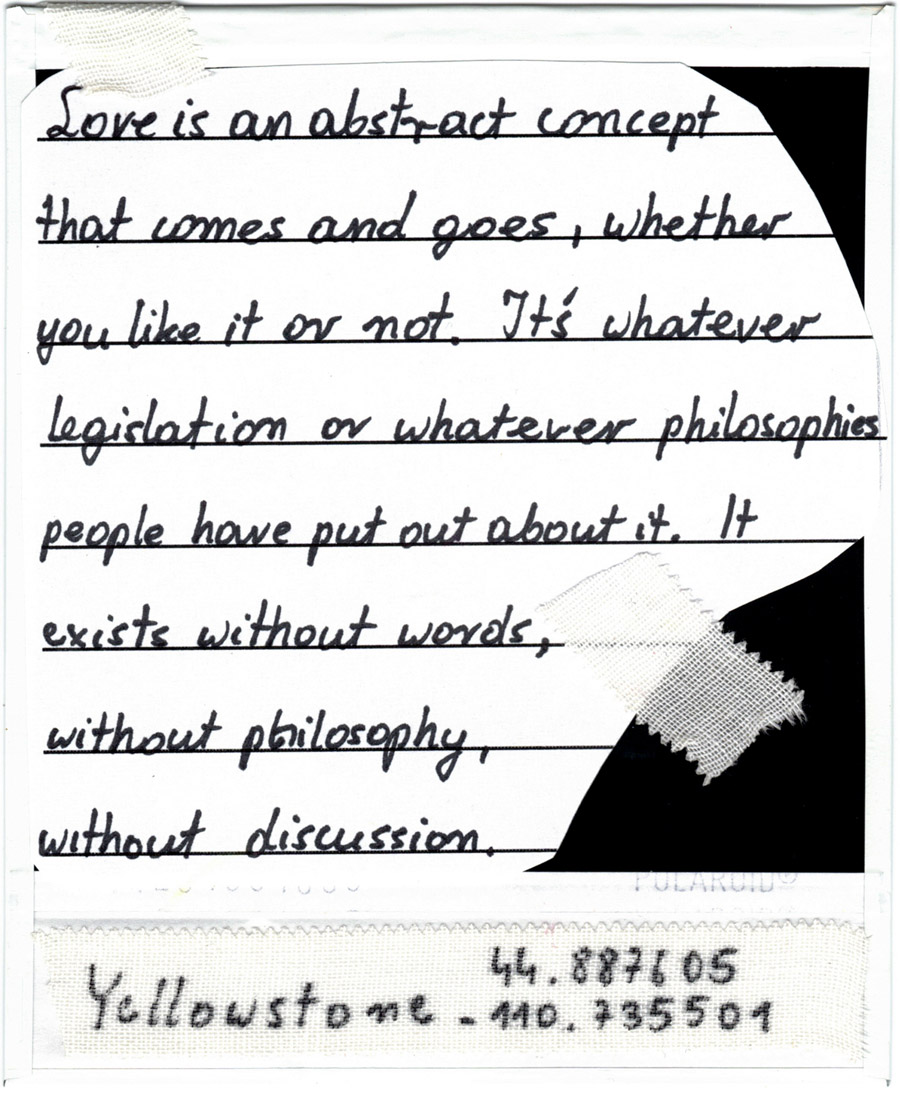 Love is an abstract concept
that comes and goes, whether
you like it or not. It's whatever
legislation or whatever philosophies
people have put out about it. It
exists without words,
without philosophy,
without discussion.
POLAROID®
Yellowstone
44.887605
-110.735501